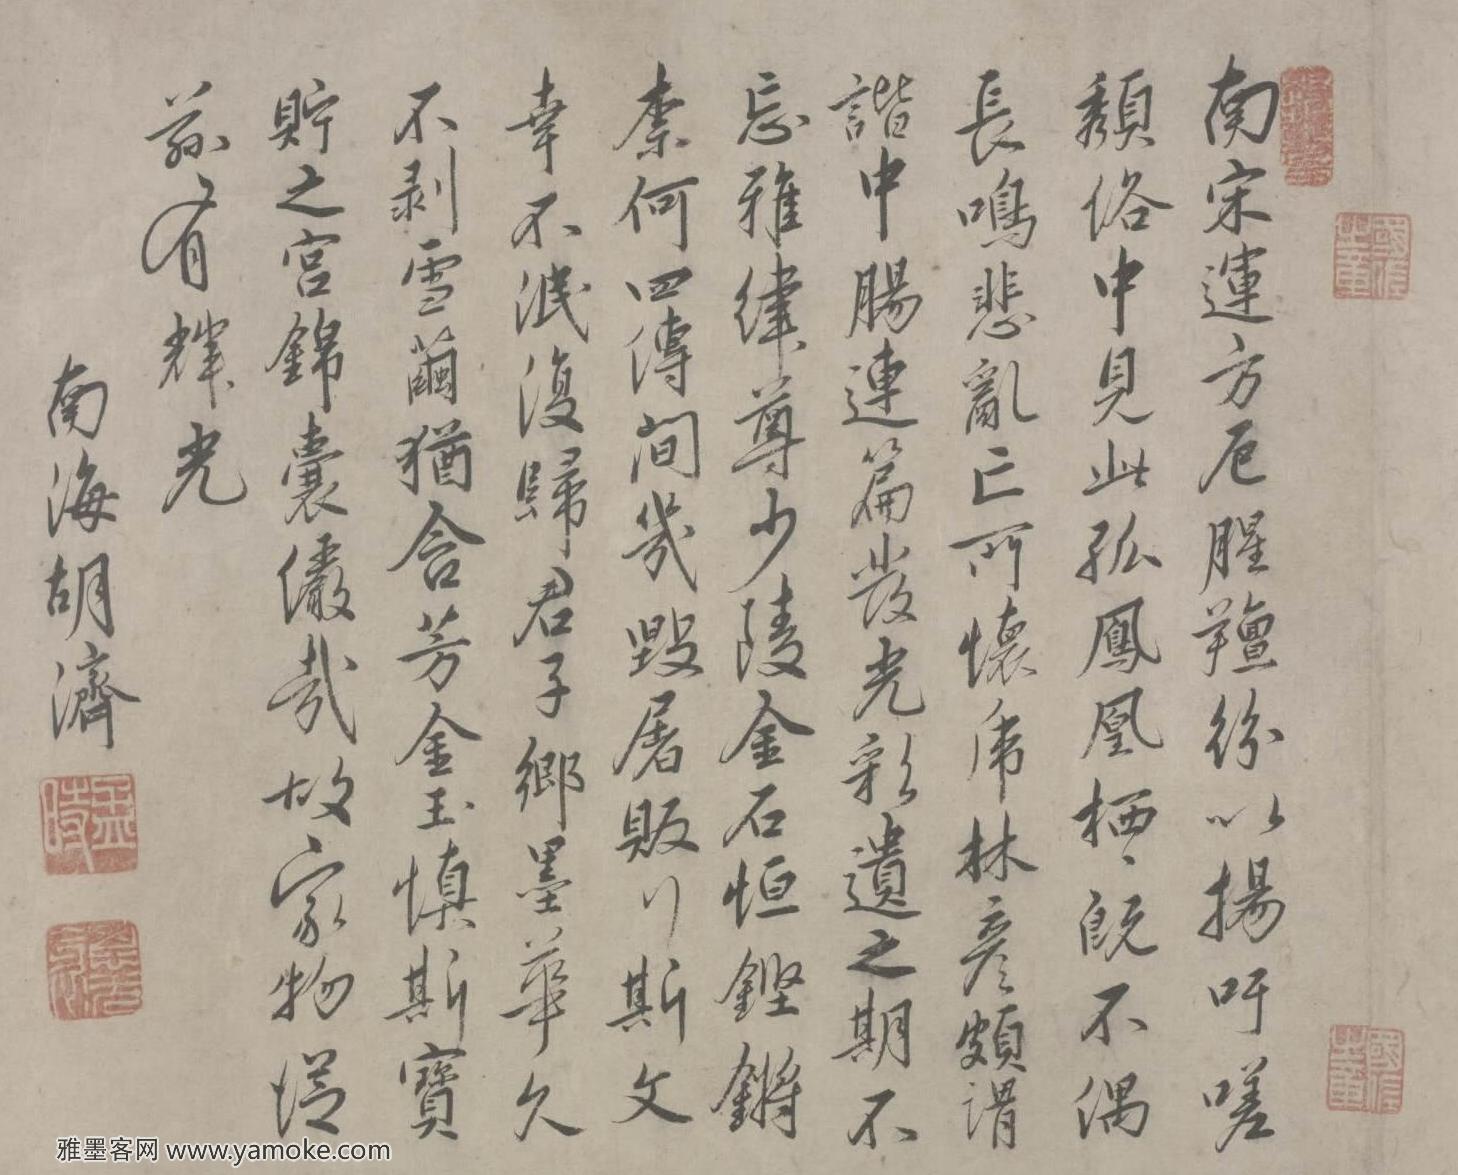 南宋運方厄腥羶紛以揚吁嗟
頹俗中見此孤鳳凰栖〻既不偶
長鳴悲亂亡所懷虎林彥頗謂
諧中腸連篇發光彩遺之期不
忘雅律尊少陵金石恒鏗鏘
柰何四傳間幾毀屠販行斯文
幸不泯復歸君子鄉墨華久
不剥雪繭猶含芳金玉慎斯寶
貯之宫錦囊儼哉故家物
孫有輝光
南海胡濟
孟時
雅墨客网 www.yamoke.com